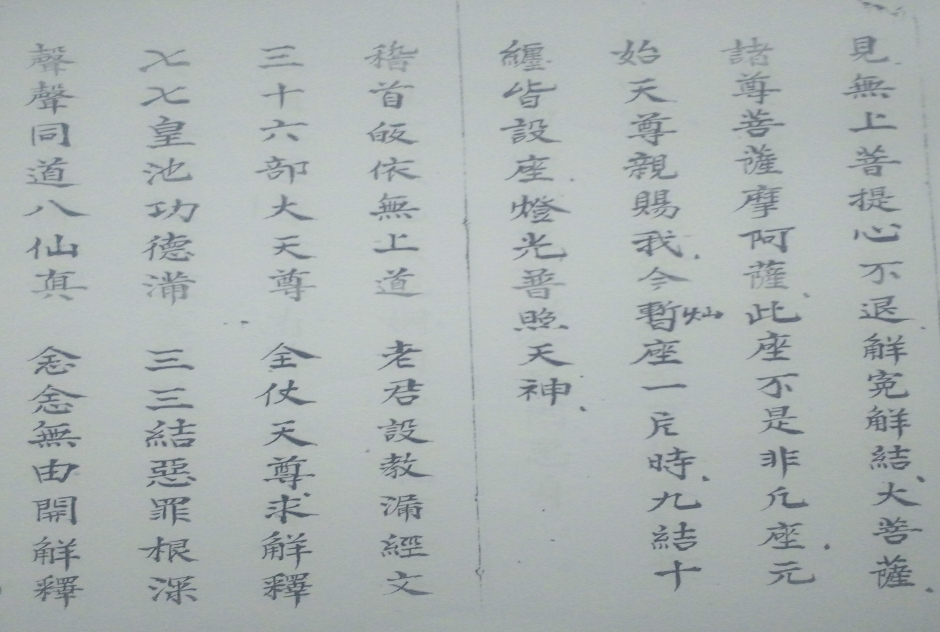 見無上菩提心不退解寃解結大菩薩
諸尊菩薩摩阿薩此座不是非凢座元
始天尊親賜我今暫灿座一片時九結十
纏皆設座燈光普照天神
稽首皈依無上道 老君設教漏經文
三十六部大天尊 全仗天尊求解釋
七七皇池功德满 三三結惡罪根深
聲聲同道八仙真 念念無由開解釋